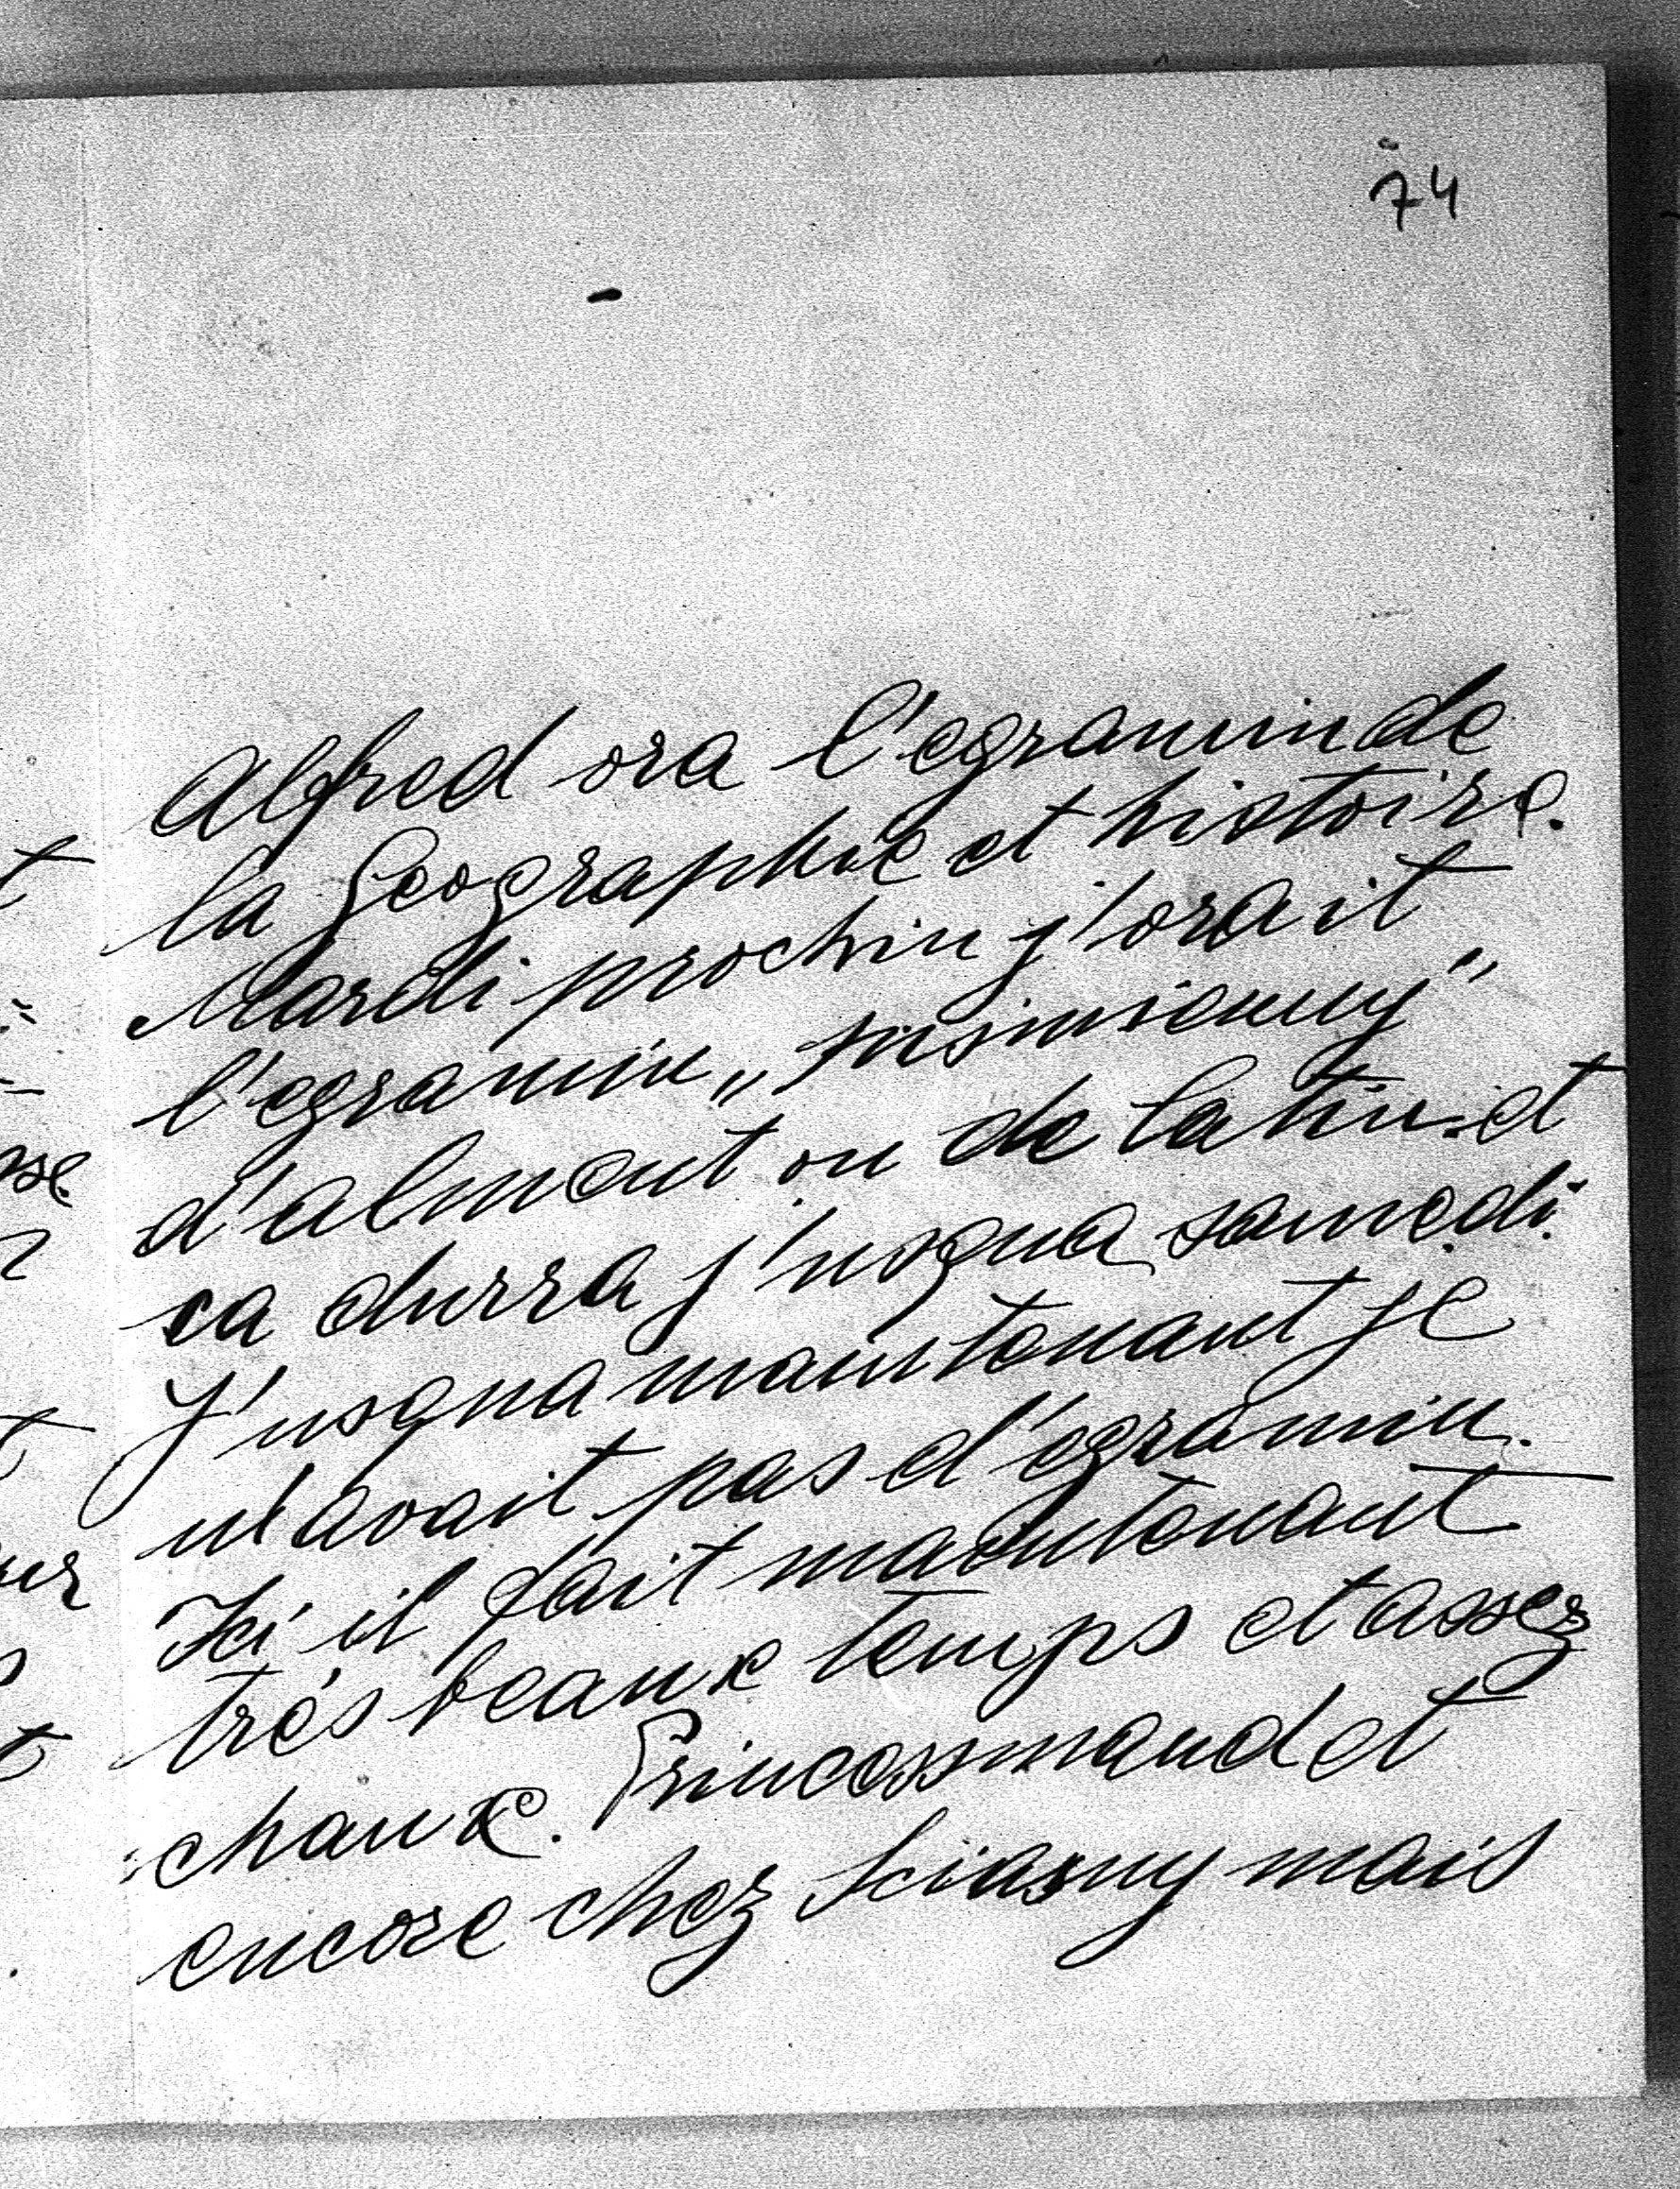 74
Alfred ora l'egzamin de
la Geographie et histoire.
Mardi prochin j'orait
l'egzamin „pismienny"
d'alment ou de latin et
ca durra j'usqua samedi.
J'usqua maintenant je
n'avait pas d'egzamin.
Ici il fait maintenant
très beaux temps et assez
chaux. Princessmaud et
encore chez Kinsky mais